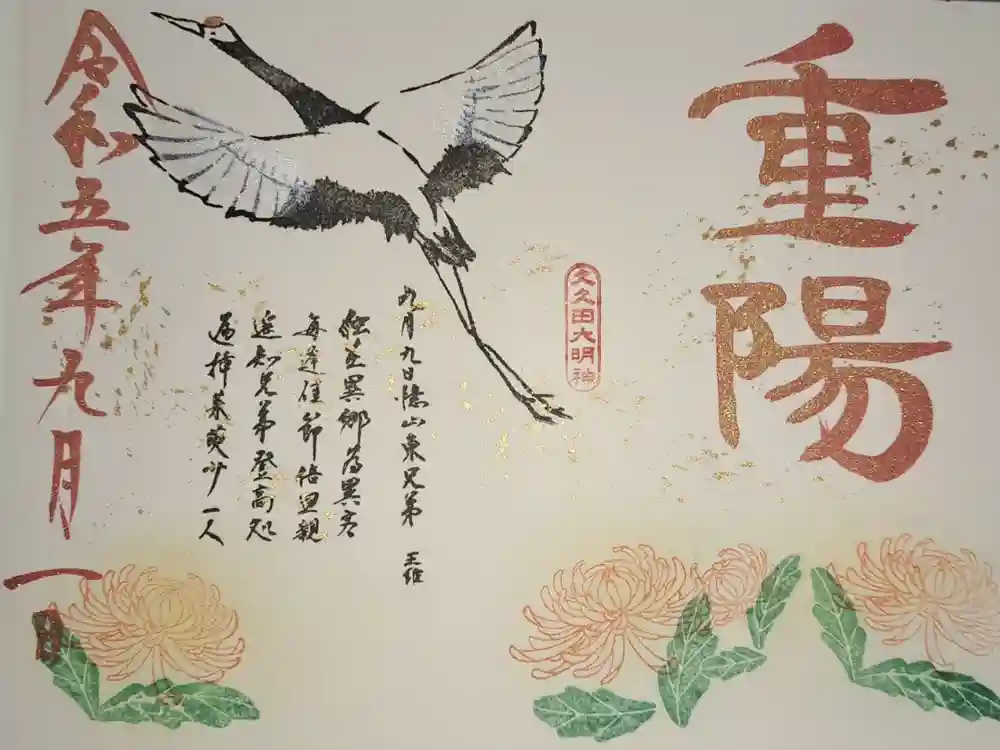 重陽
久久田大明神
九月九日憶山東兄弟 王維
独在異郷為異客
毎逢佳節倍思親
遥知兄弟登高処
遍挿茱萸少一人
令和五年九月一日